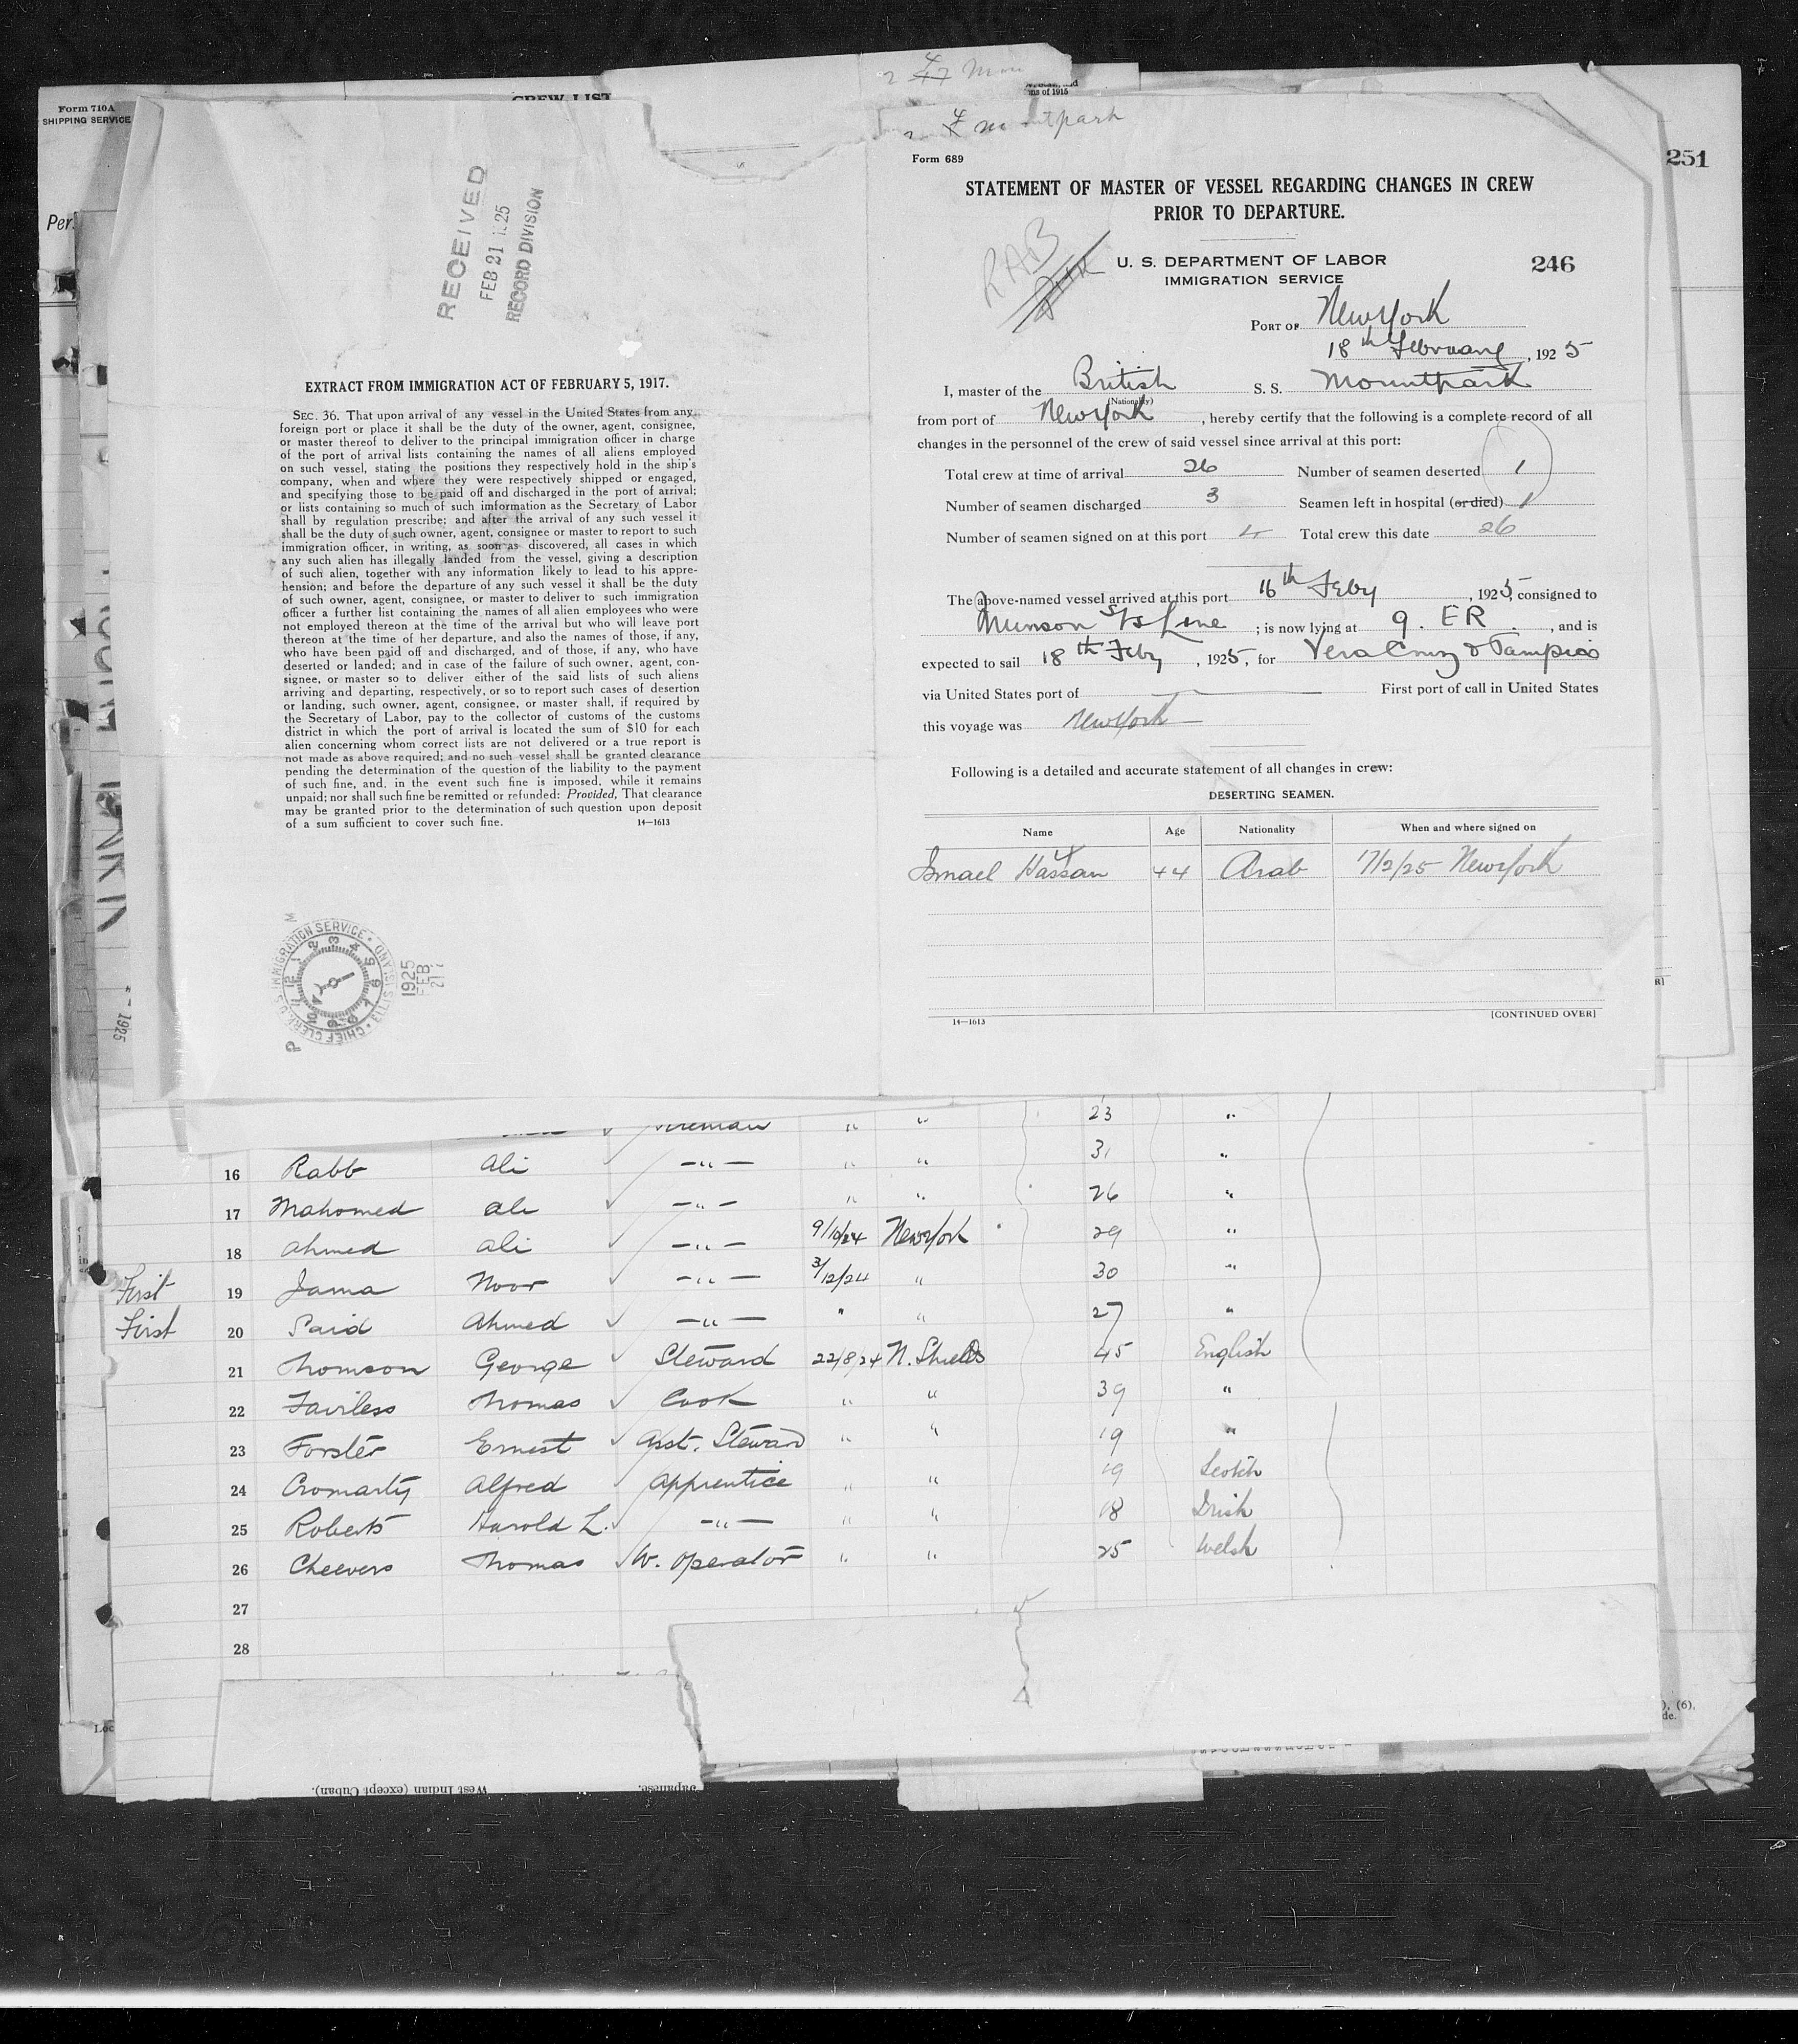 Form 710A
SHIPPING SERVICE
CREW LIST
ns of 1915
Form 689
251
STATEMENT OF MASTER OF VESSEL REGARDING CHANGES IN CREW
PRIOR TO DEPARTURE.
RAB
U. S. DEPARTMENT OF LABOR
IMMIGRATION SERVICE
246
PORT OF New York
18th February, 1925
I, master of the British S. S. Mountpark
(Nationality)
from port of New York, hereby certify that the following is a complete record of all
changes in the personnel of the crew of said vessel since arrival at this port:
Total crew at time of arrival 26 Number of seamen deserted 1
Number of seamen discharged 3 Seamen left in hospital (or died) 1
Number of seamen signed on at this port 4 Total crew this date 26
The above-named vessel arrived at this port 16th Feby, 1925, consigned to
Munson S/S Line; is now lying at 9. ER., and is
expected to sail 18th Feby, 1925, for Vera Cruz & Tampico
via United States port of — First port of call in United States
this voyage was New York —
Following is a detailed and accurate statement of all changes in crew:
DESERTING SEAMEN.
Name Age Nationality When and where signed on
Ismael Hassan 44 Arab 17/2/25 New York
14—1613 [CONTINUED OVER]
RECEIVED
FEB 21 1925
RECORD DIVISION
EXTRACT FROM IMMIGRATION ACT OF FEBRUARY 5, 1917.
SEC. 36. That upon arrival of any vessel in the United States from any
foreign port or place it shall be the duty of the owner, agent, consignee,
or master thereof to deliver to the principal immigration officer in charge
of the port of arrival lists containing the names of all aliens employed
on such vessel, stating the positions they respectively hold in the ship's
company, when and where they were respectively shipped or engaged,
and specifying those to be paid off and discharged in the port of arrival;
or lists containing so much of such imformation as the Secretary of Labor
shall by regulation prescribe; and after the arrival of any such vessel it
shall be the duty of such owner, agent, consignee or master to report to such
immigration officer, in writing, as soon as discovered, all cases in which
any such alien has illegally landed from the vessel, giving a description
of such alien, together with any information likely to lead to his appre-
hension; and before the departure of any such vessel it shall be the duty
of such owner, agent, consignee, or master to deliver to such immigration
officer a further list containing the names of all alien employees who were
not employed thereon at the time of the arrival but who will leave port
thereon at the time of her departure, and also the names of those, if any,
who have been paid off and discharged, and of those, if any, who have
deserted or landed; and in case of the failure of such owner, agent, con-
signee, or master so to deliver either of the said lists of such aliens
arriving and departing, respectively, or so to report such cases of desertion
or landing, such owner, agent, consignee, or master shall, if required by
the Secretary of Labor, pay to the collector of customs of the customs
district in which the port of arrival is located the sum of $10 for each
alien concerning whom correct lists are not delivered or a true report is
not made as above required; and no such vessel shall be granted clearance
pending the determination of the question of the liability to the payment
of such fine, and, in the event such fine is imposed, while it remains
unpaid; nor shall such fine be remitted or refunded: Provided, That clearance
may be granted prior to the determination of such question upon deposit
of a sum sufficient to cover such fine. 14—1613
U.S. IMMIGRATION SERVICE · ELLIS ISLAND · CHIEF CLERK
1925
FEB
21
1925
Fireman " " 23 "
16 Rabb Ali —"— " " 31 "
17 Mahomed Ali —"— " " 26 "
18 Ahmed Ali —"— 9/10/24 New York 29 "
First 19 Jama Noor —"— 3/12/24 " 30 "
First 20 Said Ahmed —"— " " 27 "
21 Thomson George Steward 22/8/24 N. Shields 45 English
22 Fairless Thomas Cook " " 39 "
23 Forster Ernest Asst. Steward " " 19 "
24 Cromarty Alfred Apprentice " " 19 Scotch
25 Roberts Harold L. —"— " " 18 Irish
26 Cheevers Thomas W. Operator " " 25 Welsh
27
28
West Indian (except Cuban).
Japanese.